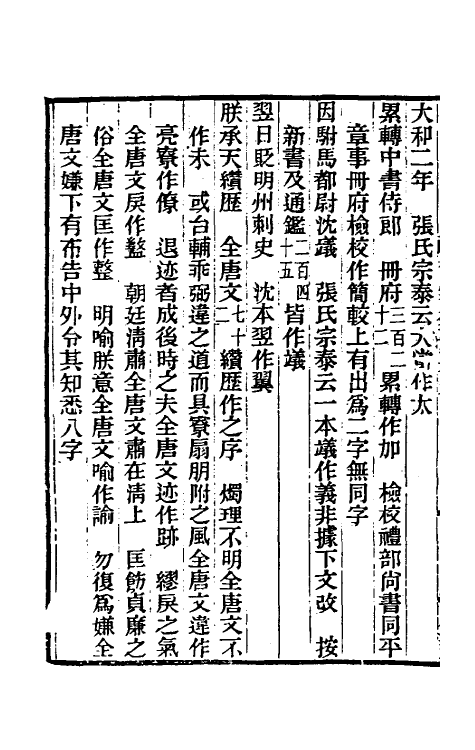 大和二年　張氏宗泰云大當作太
累轉中書侍郎　冊府三百二十二　累轉作加　檢校禮部尚書同平
章事冊府檢校作簡較上有出爲二字無同字
因駙馬都尉沈䥧　張氏宗泰云一本䥧作義非據下文改　按
新書及通鑑二百四十五皆作䥧
翌日貶明州刺史　沈本翌作翼
朕承天纘歷　全唐文七十二　纘歷作之序　燭理不明全唐文不
作未　或台輔乖弼違之道而具寮扇朋附之風全唐文違作
亮寮作僚　退迹者成後時之夫全唐文迹作跡　繆戾之氣
全唐文戾作盭　朝廷淸肅全唐文肅在淸上　匡飭貞廉之
俗全唐文匡作整　明喻朕意全唐文喻作諭　勿復爲嫌全
唐文嫌下有布告中外令其知悉八字